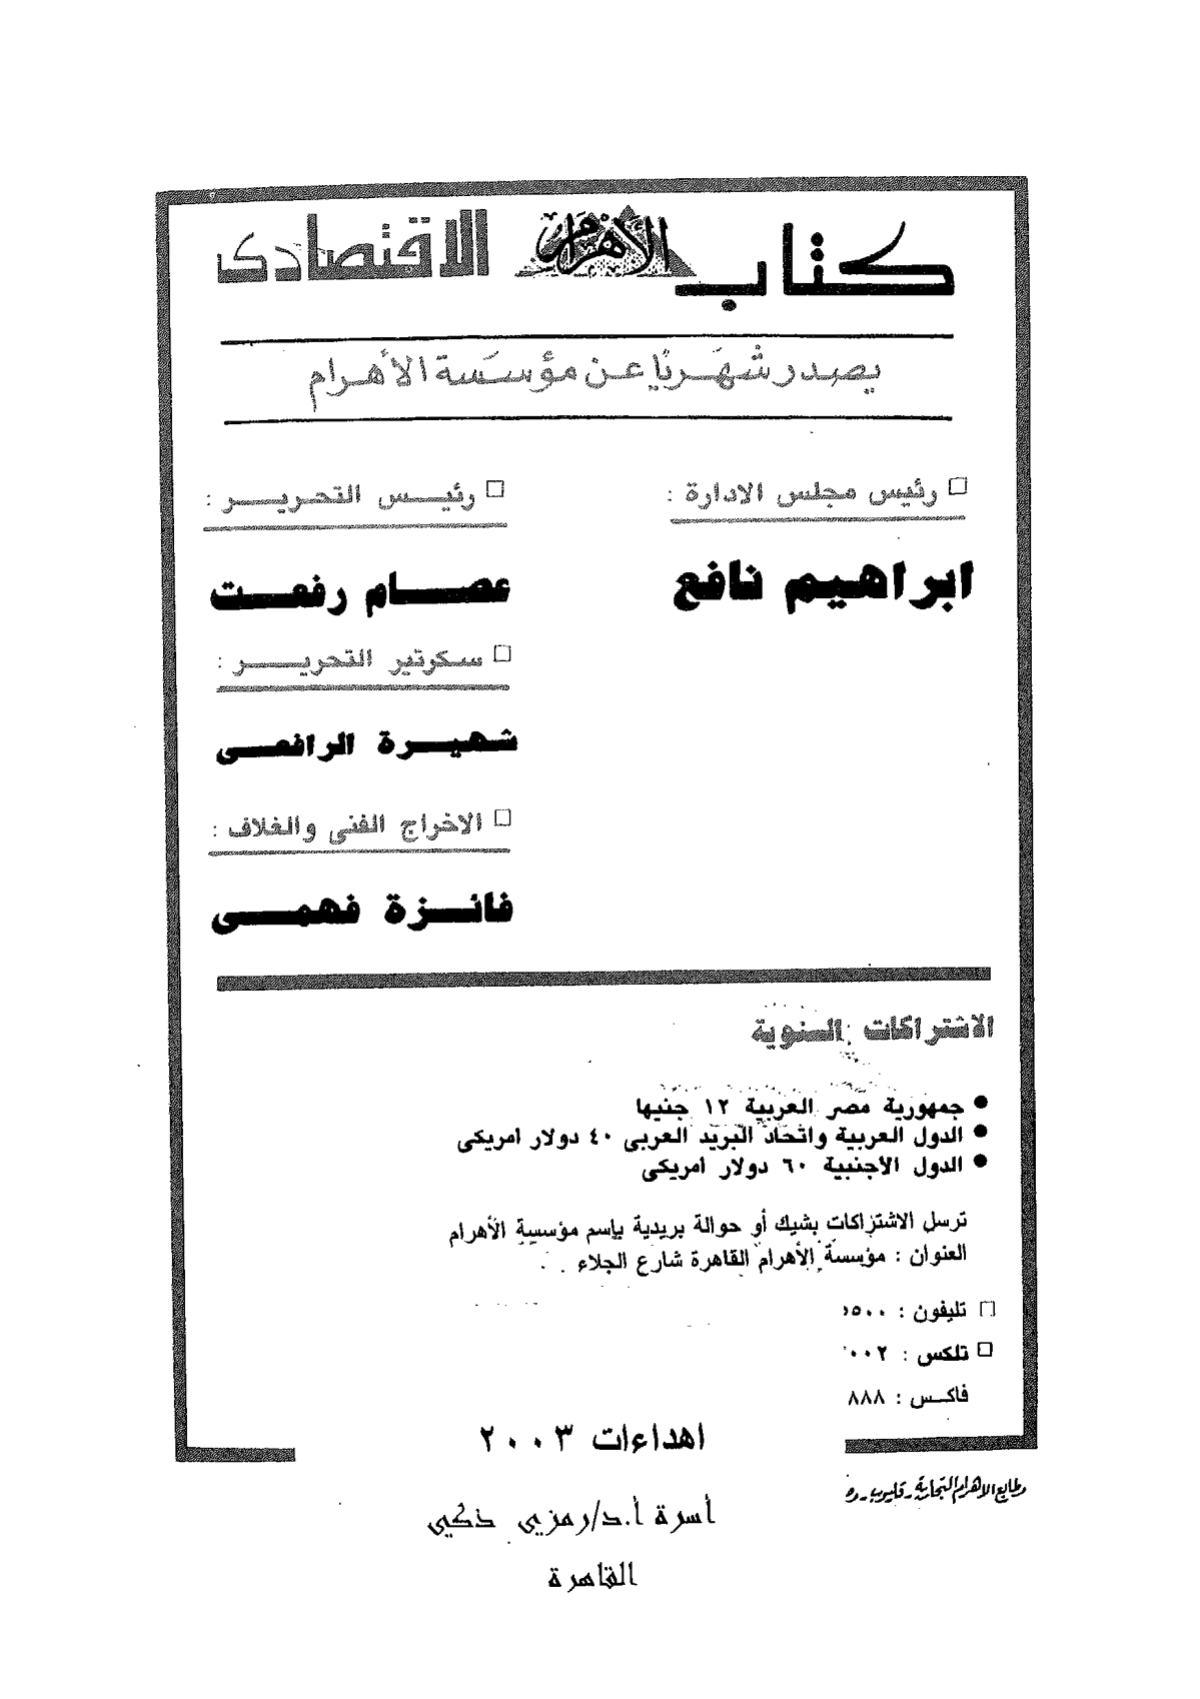 كتاب الأهرام الاقتصادى
يصدر شهريًا عن مؤسسة الأهرام
□ رئيس مجلس الادارة :
ابراهيم نافع
□ رئيس التحرير :
عصام رفعت
□ سكرتير التحرير :
شهيرة الرافعى
□ الاخراج الفنى والغلاف :
فائزة فهمى
الاشتراكات السنوية
● جمهورية مصر العربية ١٢ جنيها
● الدول العربية واتحاد البريد العربى ٤٠ دولار امريكى
● الدول الأجنبية ٦٠ دولار امريكى
ترسل الاشتراكات بشيك أو حوالة بريدية بإسم مؤسسة الأهرام
العنوان : مؤسسة الأهرام القاهرة شارع الجلاء
□ تليفون : ٥٥٠٠
□ تلكس : ٠٠٢
فاكس : ٨٨٨
اهداءات ٢٠٠٣
أسرة أ.د/رمزي ذكي
القاهرة
مطابع الاهرام التجارية - قليوب -